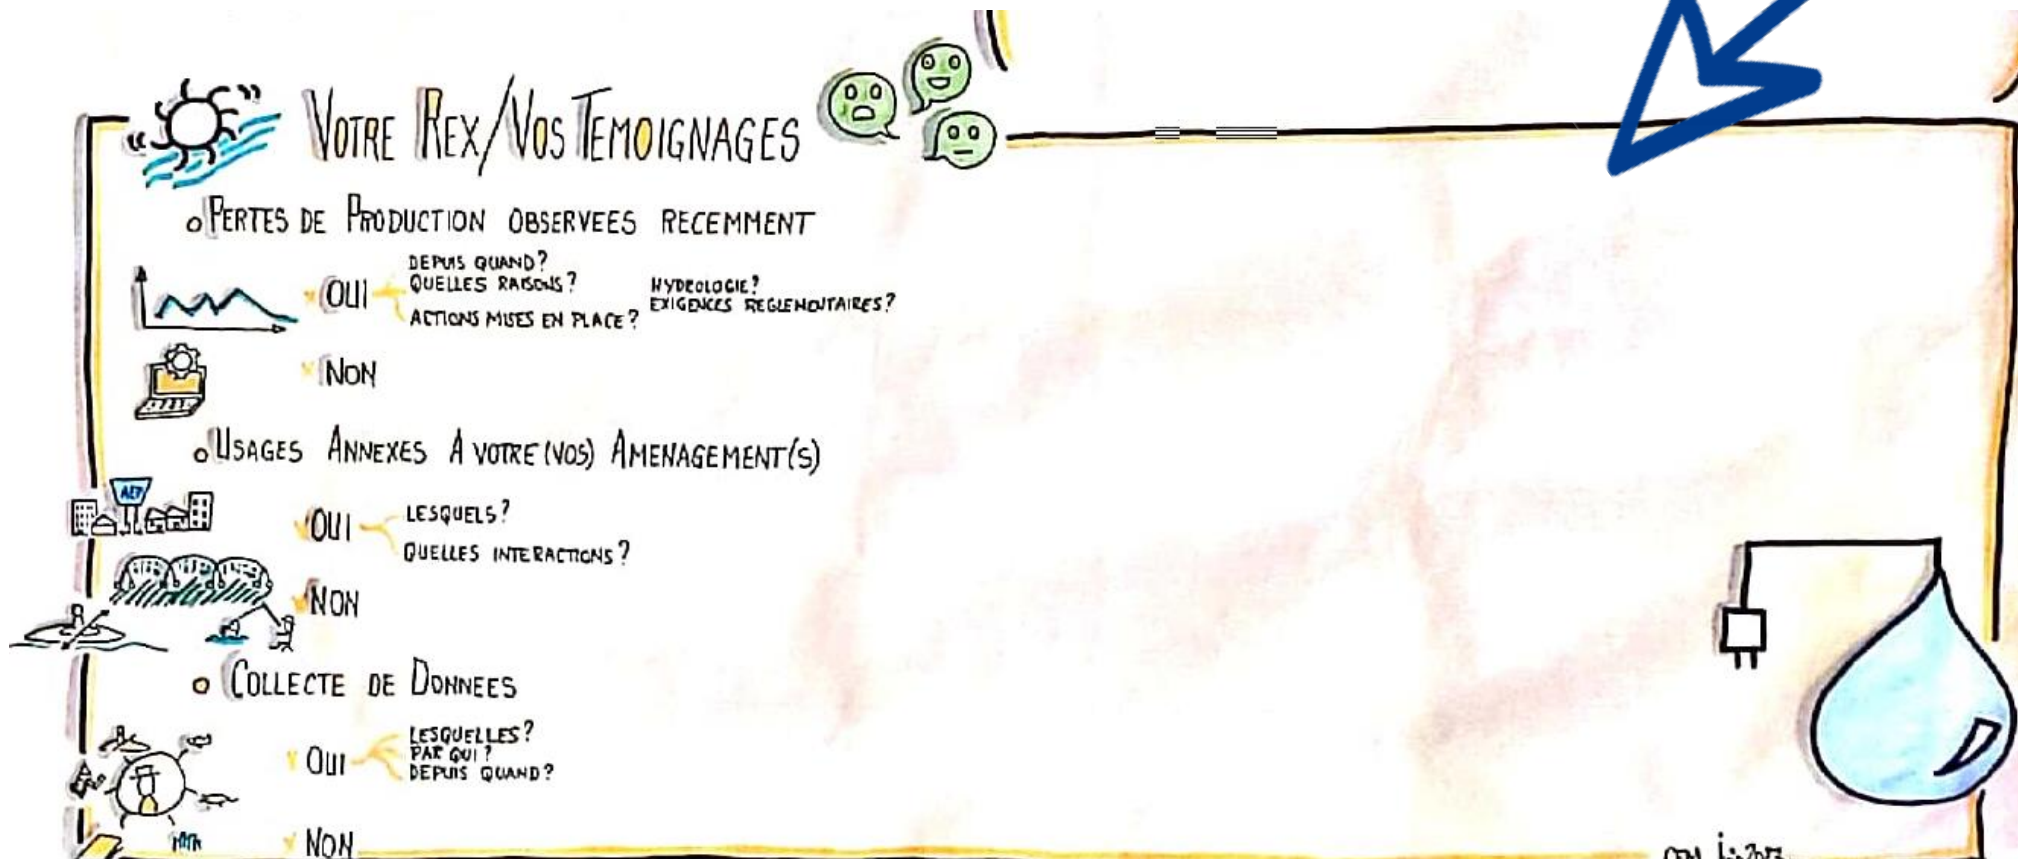 VOTRE REX/VOS TEMOIGNAGES
PERTES DE PRODUCTION OBSERVEES RECEMMENT
OUI
DEPUIS QUAND?
QUELLES RAISONS?
HYDROLOGIE?
EXIGENCES REGLEMENTAIRES?
ACTIONS MISES EN PLACE?
NON
USAGES ANNEXES A VOTRE (VOS) AMENAGEMENT(S)
AEP
OUI
LESQUELS?
QUELLES INTERACTIONS?
NON
COLLECTE DE DONNEES
OUI
LESQUELLES?
PAR QUI?
DEPUIS QUAND?
NON